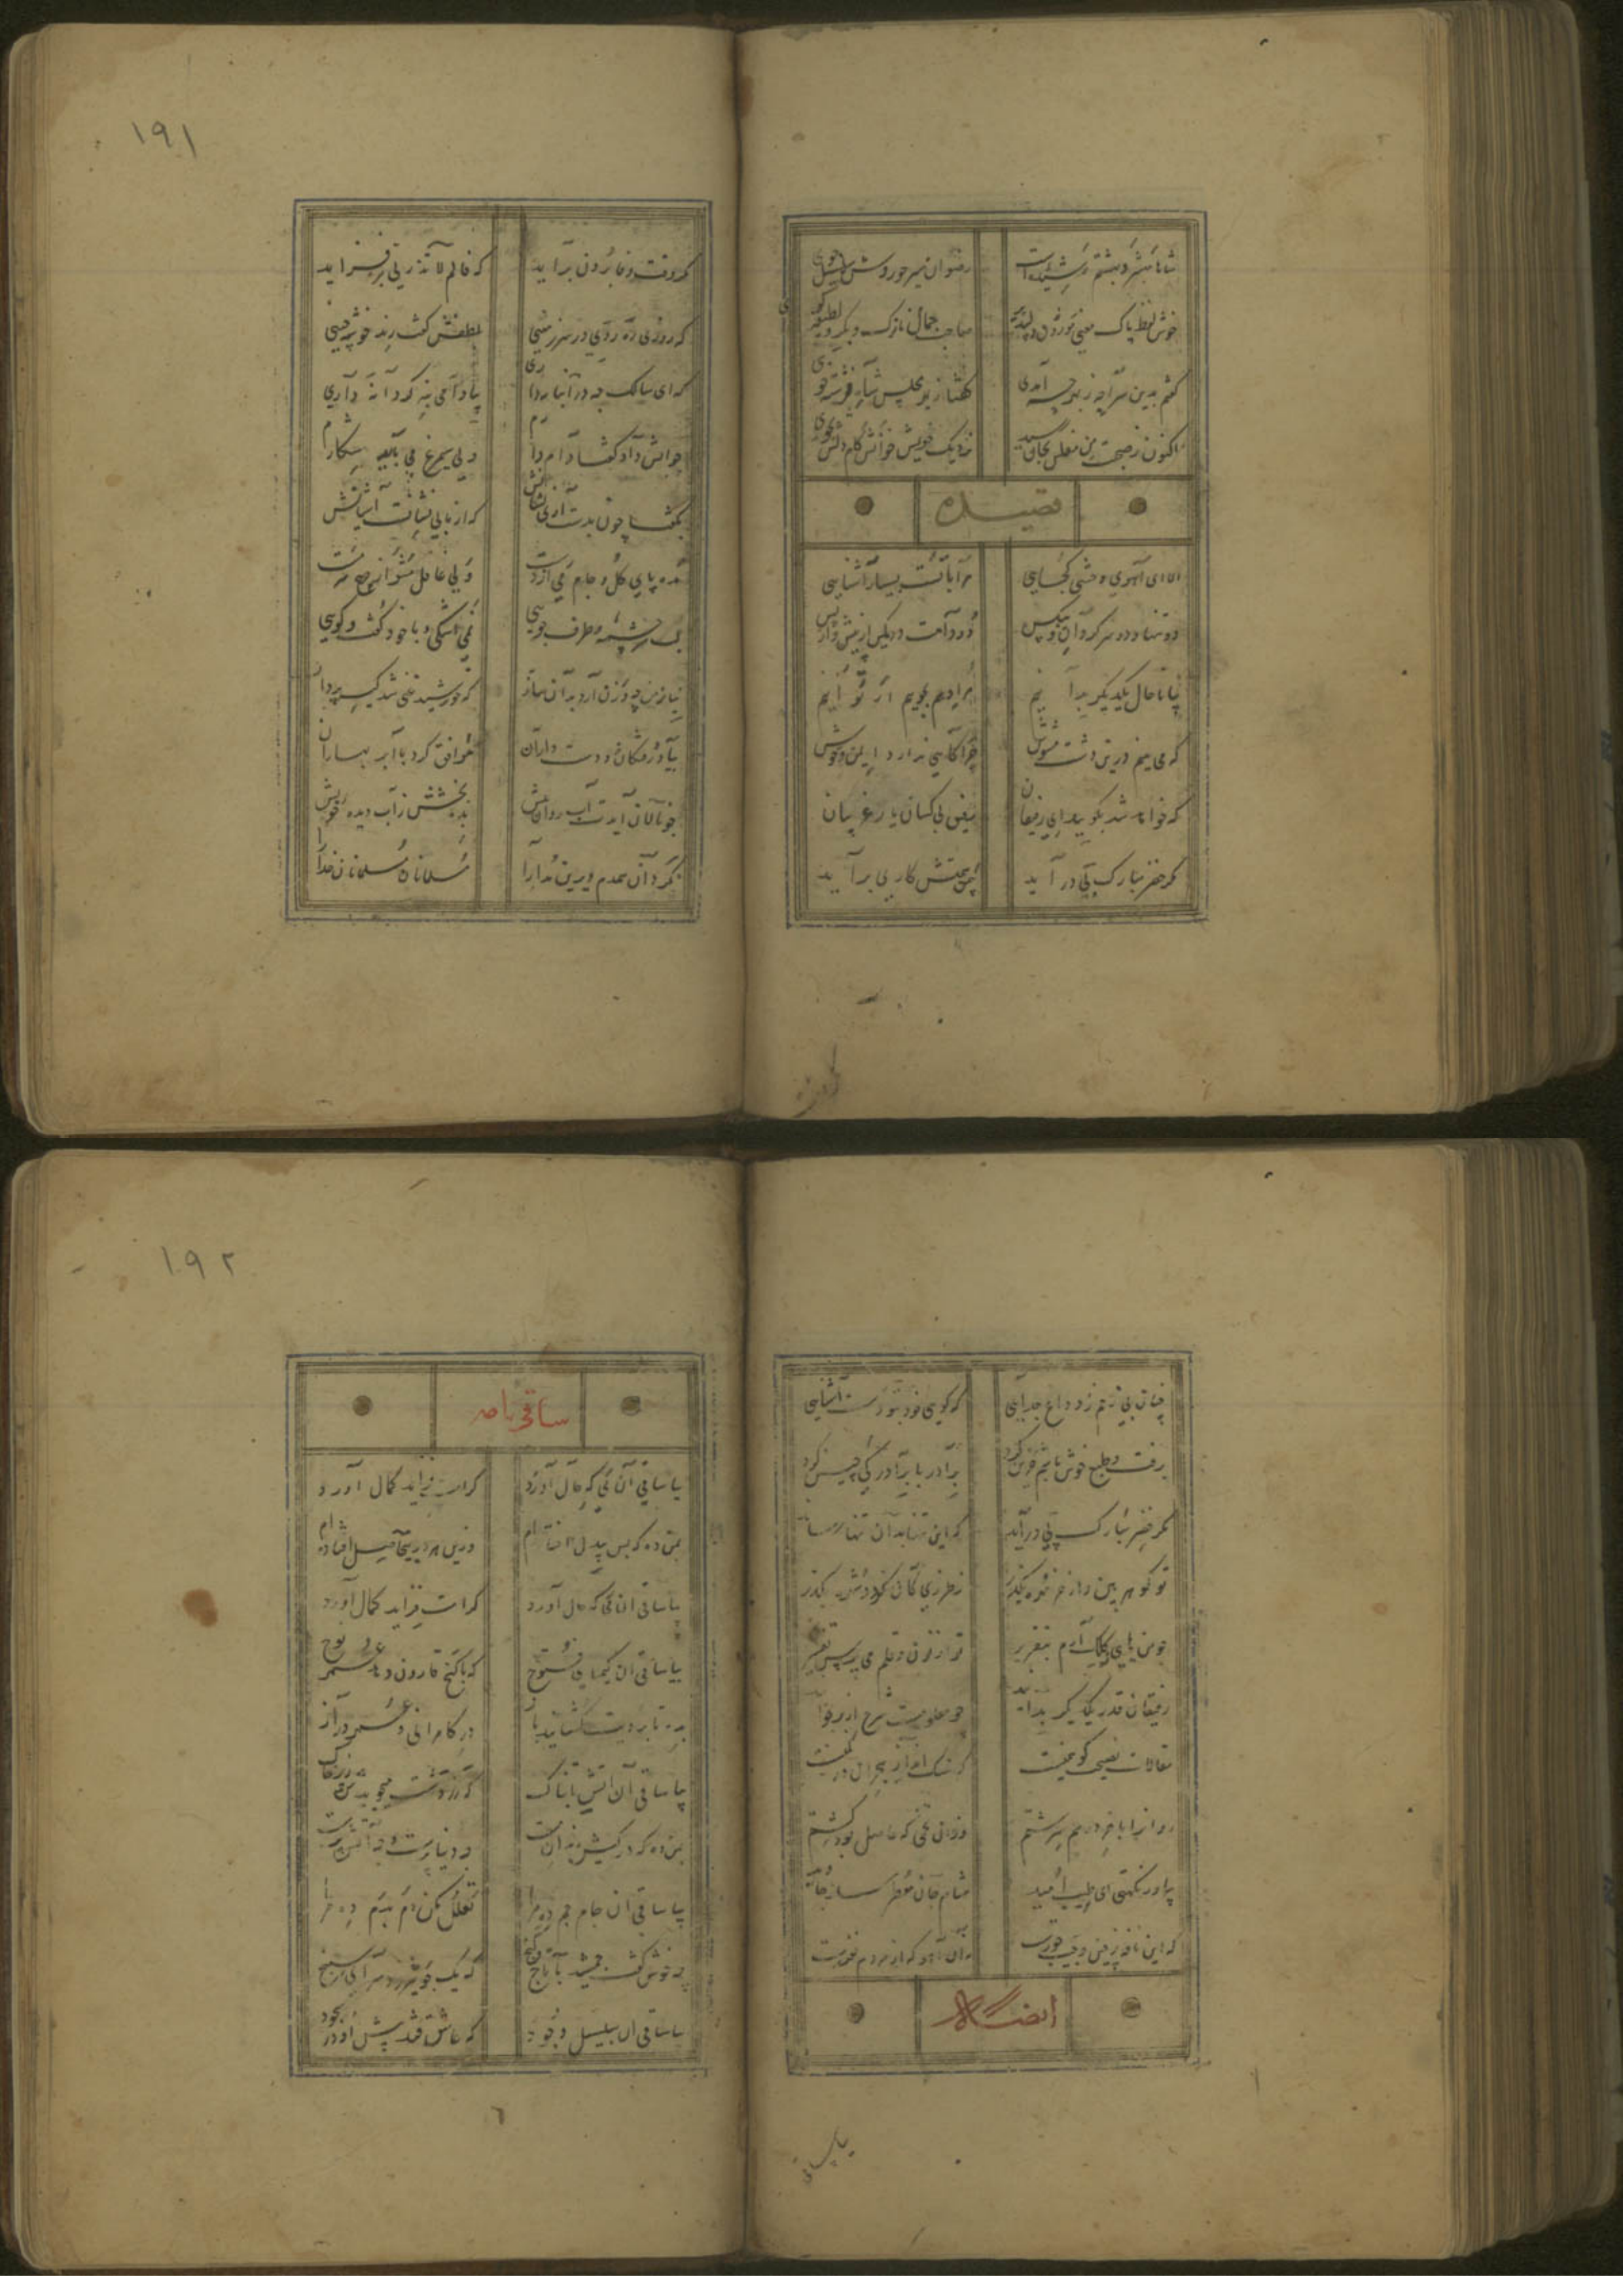 ۱۹۱
شاها مبشری ز بهشتم رسیده است
رضوان سریر حوروش سلسبیل موی
خوش لفظ پاک معنی موزون دلپذیر
صاحب جمال نازک و بکر و لطیفه گوی
گفتم بدین سراچه ز بهر چه آمدی
گفتا ز بهر مجلس شاه فرشته خوی
اکنون ز صحبت من مفلس بجان رسید
نزدیک خویش خوانش کام دلش بجوی
قصیده
الا ای آهوی وحشی کجایی
مرا با تست بسیار آشنایی
دو تنها و دو سرکردان و بیکس
دد و دامت در کمین از پیش و از پس
بیا تا حال یکدیگر بدانیم
مراد هم بجوییم ار توانیم
که می بینم درین دشت مشوش
چراگاهی ندارد ایمن و خوش
که خواهد شد بگویید ای رفیقان
رفیق بی کسان یار غریبان
مگر خضر مبارک پی در آید
بیمن همتش کاری بر آید
مگر وقت وفا پروردن آید
که فالم لا تذرنی فردا آید
که روزی ره روی در سرزمینی
بلطفش گفت رندی خوشه چینی
که ای سالک چه در انبانه داری
بیا دامی بنه گر دانه داری
جوابش داد گفتا دام دارم
ولی سیمرغ می باید شکارم
بگفتا چون بدست آری نشانش
که از ما بی نشانست آشیانش
مده پای گل و جام می از دست
ولی غافل مشو از چرخ سرمست
لب سرچشمه و طرف جویی
نمی اشکی و با خود گفت و گویی
نیاز من چه وزن آرد بدان ساز
که خورشید غنی شد کیسه پرداز
بیاد رفتگان و دوست داران
موافق کرد با ابر بهاران
چو نالان آیدت آب روان پیش
مدد بخشش ز آب دیده خویش
نکرد آن همدم دیرین مدارا
مسلمانان مسلمانان خدا را
۱۹۲
چنان بی رحم زد داغ جدایی
که گویی خود نبودست آشنایی
برفت و طبع خوش باشم حزین کرد
برادر با برادر کی چنین کرد
مگر خضر مبارک پی در آید
که این تنها بدان تنها رساند
تو گوهر بین و از خر مهره بگذر
ز طرزی کان نگردد شهره بگذر
چو من ماهی کلک آرم بتقریر
تو از نون و قلم می پرس تفسیر
رفیقان قدر یکدیگر بدانید
چو معلومست شرح از بر بخوانید
مقالات نصیحت گو همینست
که سنگ انداز هجران در کمینست
روان را با خرد در هم سرشتم
وزان تخمی که حاصل بود کشتم
بیاور نکهتی ای طیب امید
مشام جان معطر ساز جاوید
که این نافه ز چین جیب حورست
نه آن آهو که از مردم نفورست
ایضاً له
ساقی نامه
بیا ساقی آن می که حال آورد
کرامت فزاید کمال آورد
بمن ده که بس بیدل افتاده ام
وزین هر دو بی حاصل افتاده ام
بیا ساقی آن می که حال آورد
کرامت فزاید کمال آورد
بیا ساقی آن کیمیای فتوح
که با گنج قارون دهد عمر نوح
بده تا برویت گشایند باز
در کامرانی و عمر دراز
بیا ساقی آن آتش تابناک
که زردشت میجوید ش زیر خاک
بمن ده که در کیش رندان مست
چه دنیا پرست و چه آتش پرست
بیا ساقی آن جام جم ده مرا
تعلل مکن دم بدم ده مرا
چه خوش گفت جمشید با تاج و گنج
که یک جو نیرزد سرای سپنج
بیا ساقی آن سلسبیل وجود